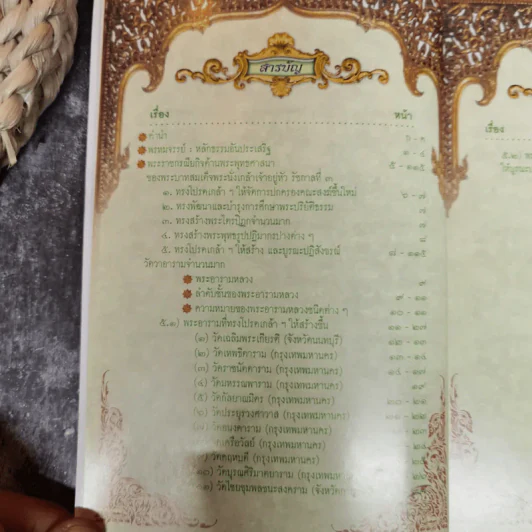 สารบัญ
เรื่อง หน้า
คำนำ
พรหมจรรย์ : หลักธรรมอันประเสริฐ ๑ - ๔
พระราชกรณียกิจด้านพระพุทธศาสนา ๕ - ๑๑๕
ของพระบาทสมเด็จพระนั่งเกล้าเจ้าอยู่หัว รัชกาลที่ ๓
๑. ทรงโปรดเกล้า ฯ ให้จัดการปกครองคณะสงฆ์ขึ้นใหม่ ๖ - ๗
๒. ทรงพัฒนาและบำรุงการศึกษาพระปริยัติธรรม ๗
๓. ทรงสร้างพระไตรปิฎกจำนวนมาก ๘
๔. ทรงสร้างพระพุทธรูปปฏิมากรปางต่าง ๆ ๘
๕. ทรงโปรดเกล้า ฯ ให้สร้าง และบูรณะปฏิสังขรณ์ ๘ - ๑๑๕
วัดวาอารามจำนวนมาก
พระอารามหลวง ๙
ลำดับชั้นของพระอารามหลวง ๙ - ๑๑
ความหมายของพระอารามหลวงชนิดต่าง ๆ ๑๐ - ๑๑
๕.๑) พระอารามที่ทรงโปรดเกล้า ฯ ให้สร้างขึ้น ๑๑ - ๒๗
(๑) วัดเฉลิมพระเกียรติ (จังหวัดนนทบุรี) ๑๑ - ๑๓
(๒) วัดเทพธิดาราม (กรุงเทพมหานคร) ๑๓ - ๑๔
(๓) วัดราชนัดดาราม (กรุงเทพมหานคร) ๑๔ - ๑๗
(๔) วัดมหรรณพาราม (กรุงเทพมหานคร) ๑๙
(๕) วัดกัลยาณมิตร (กรุงเทพมหานคร) ๒๐ - ๒๑
(๖) วัดประยุรวงศาวาส (กรุงเทพมหานคร) ๒๑ - ๒๒
วัดอนงคาราม (กรุงเทพมหานคร)
วัดเครือวัลย์ (กรุงเทพมหานคร)
วัดคฤหบดี (กรุงเทพมหานคร)
วัดบุรณศิริมาตยาราม (กรุงเทพมหานคร)
วัดไชยชุมพลชนะสงคราม (จังหวัด
เรื่อง